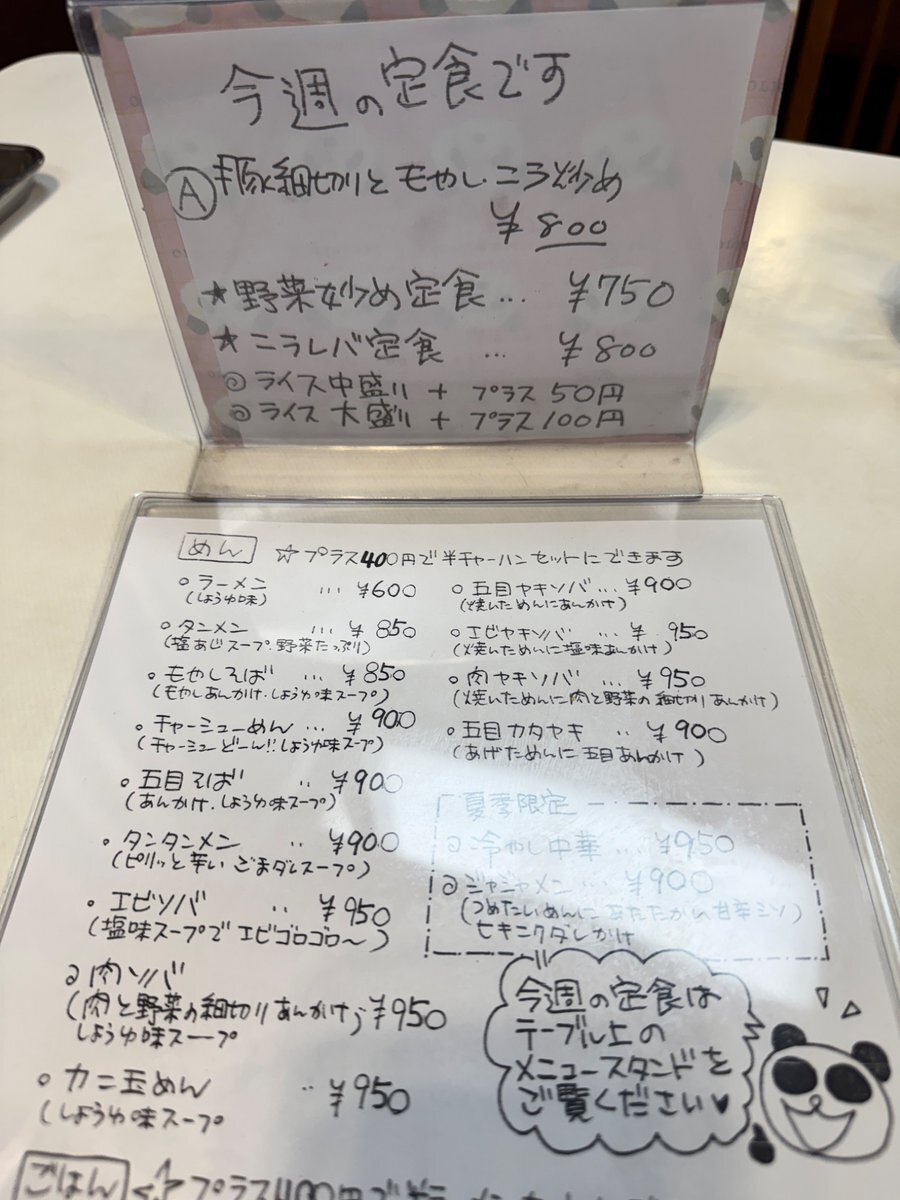 今週の定食です
Ⓐ豚細切りともやし・ニラ炒め
¥800
★野菜炒め定食… ¥750
★ニラレバ定食 … ¥800
◎ライス中盛り + プラス50円
◎ライス大盛り + プラス100円
めん ☆プラス400円で半チャーハンセットにできます
○ラーメン … ¥600
(しょうゆ味)
○タンメン … ¥850
(塩あじスープ.野菜たっぷり)
○もやしそば … ¥850
(もやしあんかけ・しょうゆ味スープ)
○チャーシューめん … ¥900
(チャーシューどーん!!しょうゆ味スープ)
○五目そば ‥ ¥900
(あんかけ.しょうゆ味スープ)
○タンタンメン ‥ ¥900
(ピリッと辛いごまダレスープ)
○エビソバ ‥ ¥950
(塩味スープでエビゴロゴロ~)
◎肉ソバ
(肉と野菜の細切りあんかけ)¥950
しょうゆ味スープ
○カニ玉めん ‥ ¥950
(しょうゆ味スープ
○五目ヤキソバ… ¥900
(焼いためんにあんかけ)
○エビヤキソバ … ¥950
(焼いためんに塩味あんかけ)
○肉ヤキソバ … ¥950
(焼いためんに肉と野菜の細切りあんかけ)
○五目カタヤキ ‥ ¥900
(あげためんに五目あんかけ)
夏季限定
◎冷やし中華 … ¥950
◎ジャジャメン … ¥900
(つめたいめんにあたたかい甘辛ミソ)
ヒキニクダレかけ
今週の定食は
テーブル上の
メニュースタンドを
ご覧ください♥
ごはん ☆プラス400円で半ラーメン